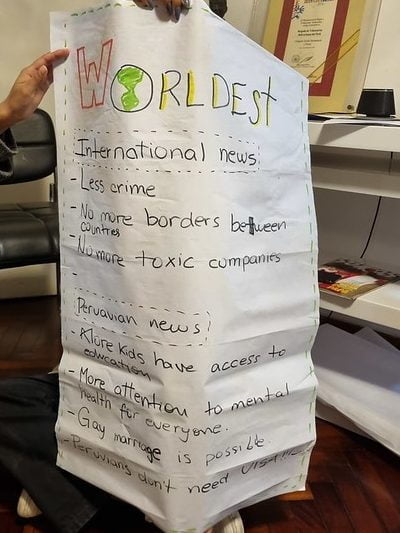 WORLDEST
International news
- Less crime
- No more borders between
countries
- No more toxic companies
-
Peruavian news
- More kids have access to
education
- More attention to mental
health for everyone.
- Gay marriage is possible.
- Peruvians don't need VISA!!!